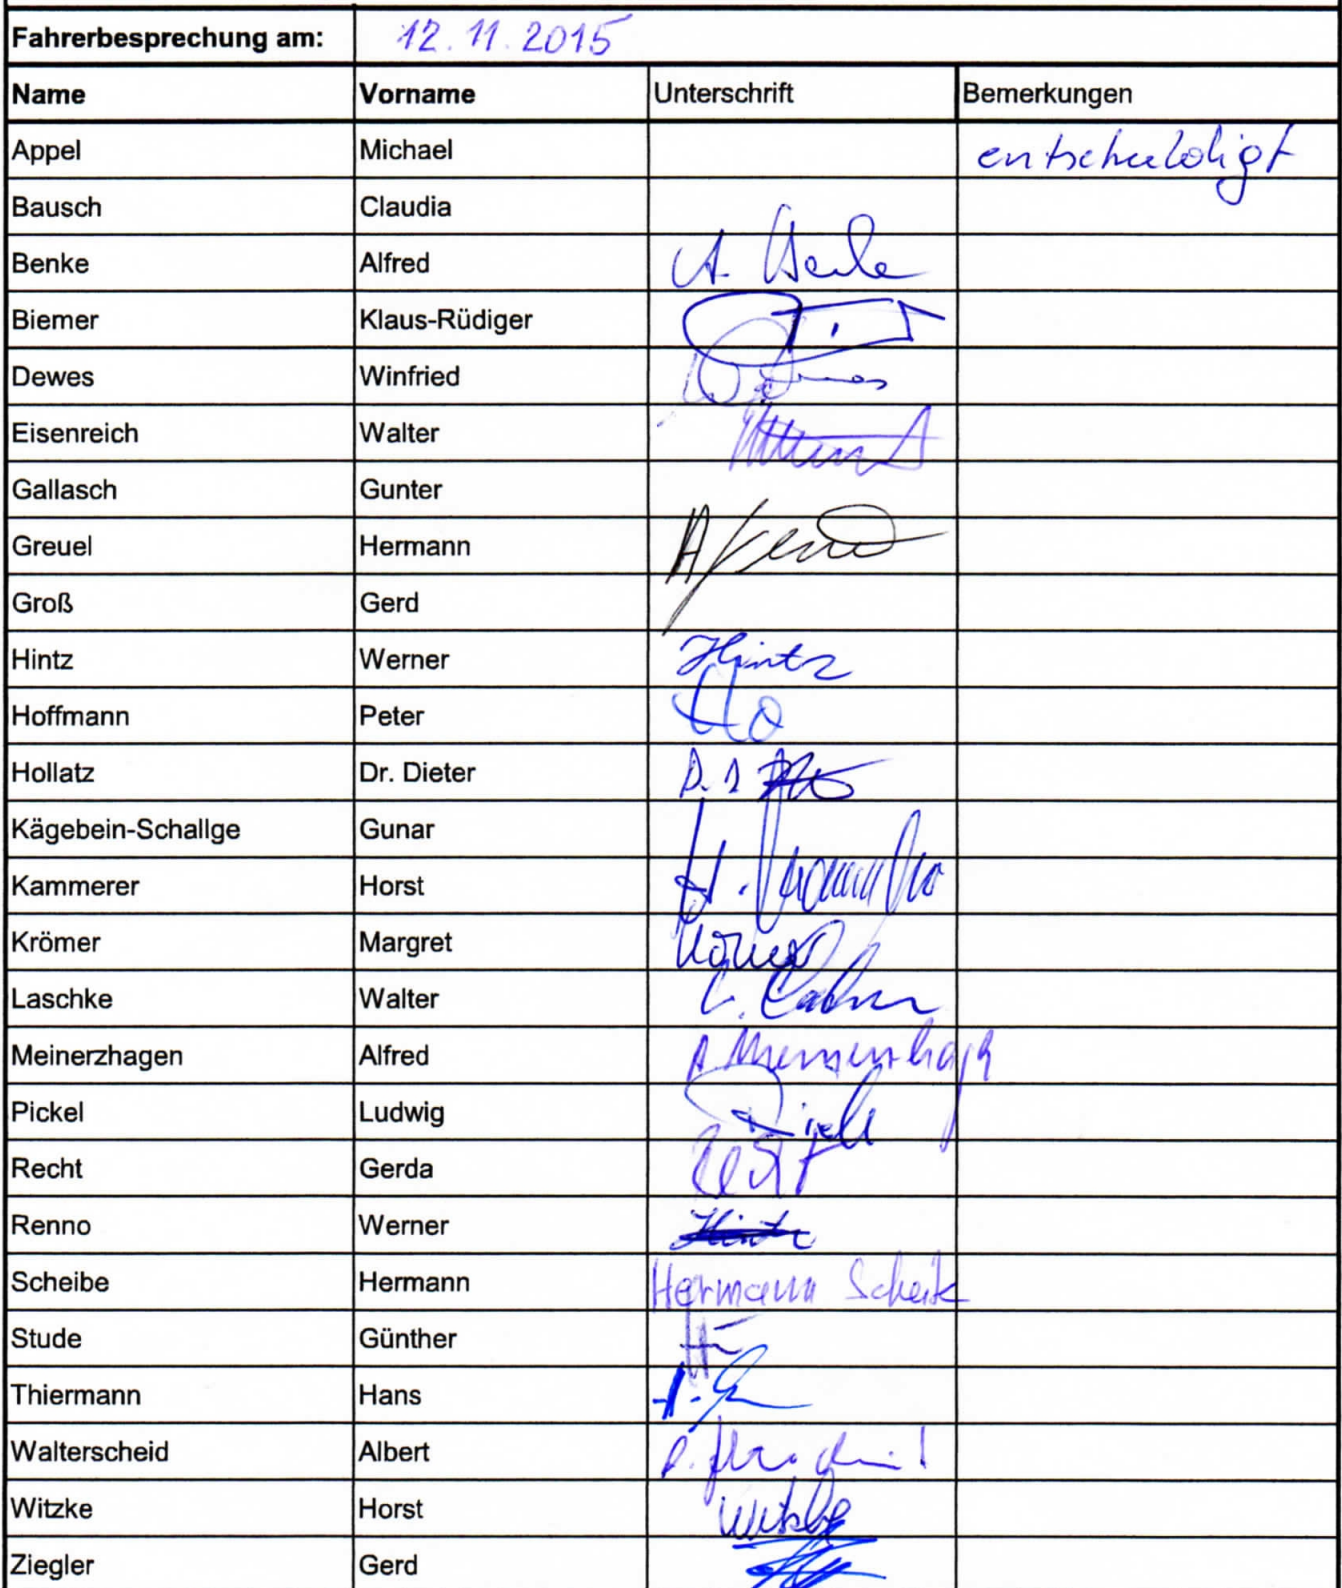 Fahrerbesprechung am: 12.11.2015
Name Vorname Unterschrift Bemerkungen
Appel Michael entschuldigt
Bausch Claudia
Benke Alfred A.
Biemer Klaus-Rüdiger
Dewes Winfried
Eisenreich Walter
Gallasch Gunter
Greuel Hermann
Groß Gerd
Hintz Werner Hintz
Hoffmann Peter
Hollatz Dr. Dieter
Kägebein-Schallge Gunar
Kammerer Horst
Krömer Margret
Laschke Walter
Meinerzhagen Alfred
Pickel Ludwig
Recht Gerda
Renno Werner
Scheibe Hermann Hermann
Stude Günther
Thiermann Hans
Walterscheid Albert
Witzke Horst
Ziegler Gerd